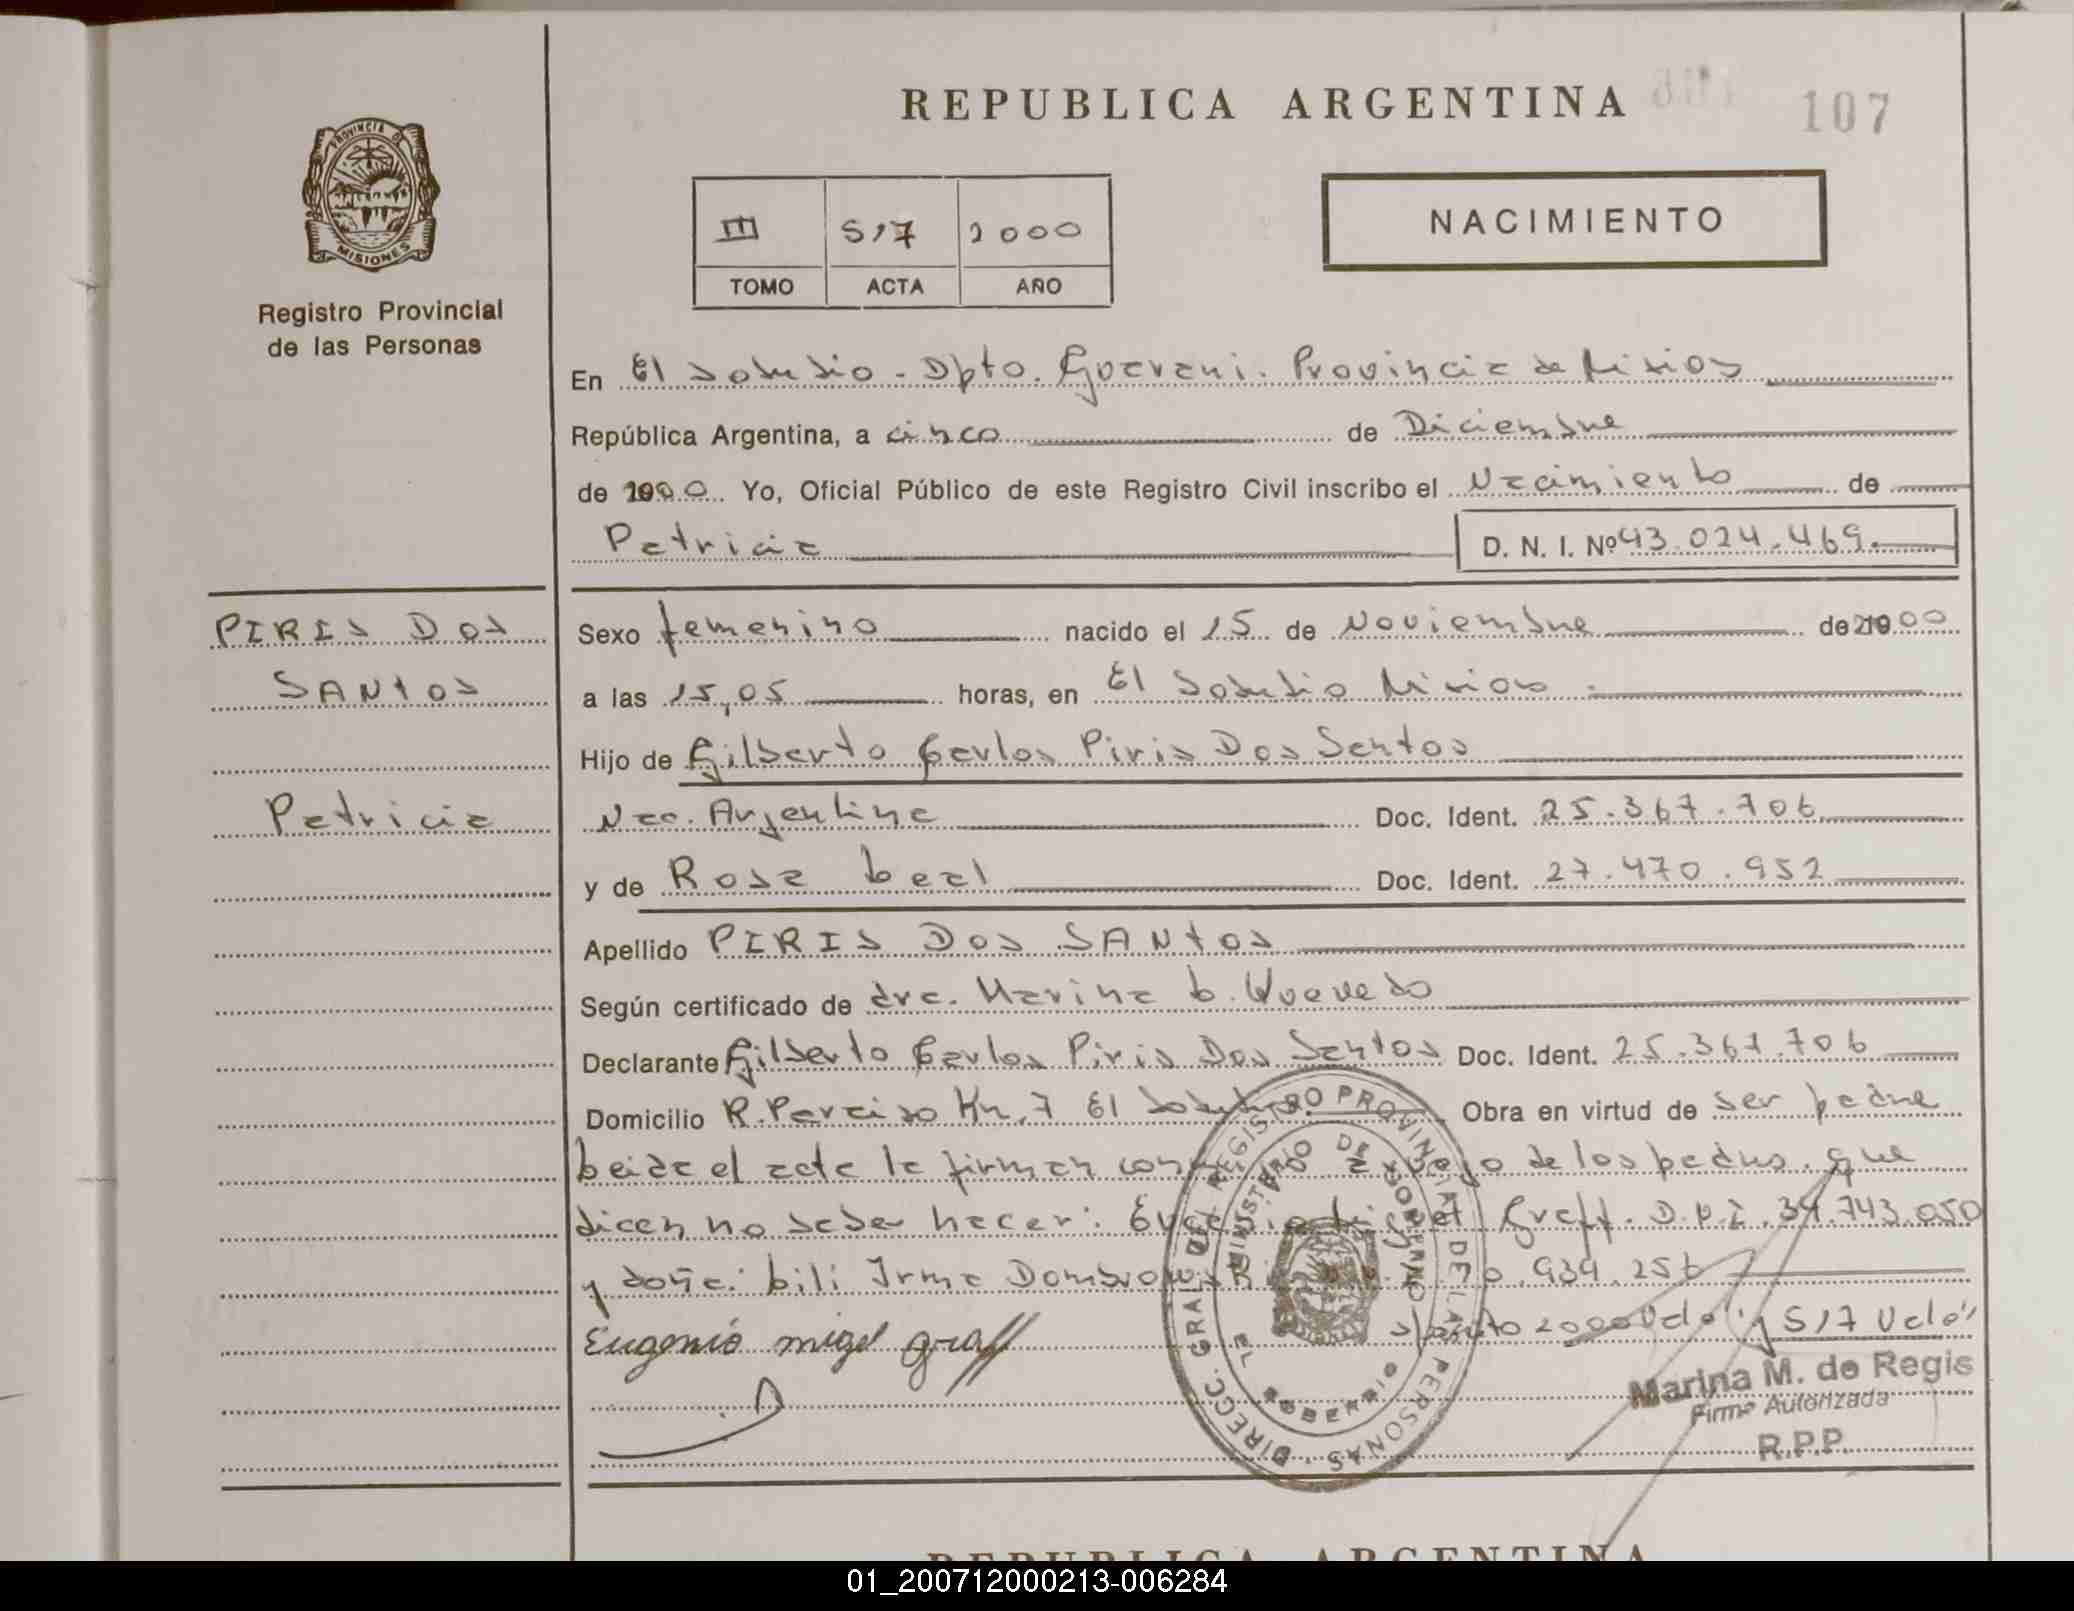 REPUBLICA ARGENTINA
107
PROVINCIA DE
MISIONES
Registro Provincial
de las Personas
III 517 2000
TOMO ACTA AÑO
NACIMIENTO
En El Soberbio - Dpto. Guarani. Provincia de Misions
República Argentina, a cinco de Diciembre
de 2000 Yo, Oficial Público de este Registro Civil inscribo el Nacimiento de
Patricia D. N. I. Nº 43.024.469.
PIRIS DOS
SANTOS
Patricia
Sexo femenino nacido el 15 de Noviembre de 2000
a las 15,05 horas, en El Soberbio Misions
Hijo de Gilberto Carlos Piris Dos Santos
Nac. Argentina Doc. Ident. 25.367.706
y de Rosa Leal Doc. Ident. 27.470.952
Apellido PIRIS DOS SANTOS
Según certificado de dra. Marina Quevedo
Declarante Gilberto Carlos Piris Dos Santos Doc. Ident. 25.367.706
Domicilio P. Paraiso Km, 7 El Soberbio Obra en virtud de ser padre
Leida el acta la firman a ruego de los padres, que
dicen no saber hacer: Graff. D.N.I. 34.743.050
y doña: Lili Irma 939.256
2000 Vale" y 517 Vale"
Eugenio migel graff
DIRECC. GRAL. DEL REGISTRO PROVINCIAL DE LAS PERSONAS
MINISTERIO DE GOBIERNO
EL SOBERBIO
Marina M. de Regis
Firma Autorizada
R.P.P.
REPUBLICA ARGENTINA
01_200712000213-006284